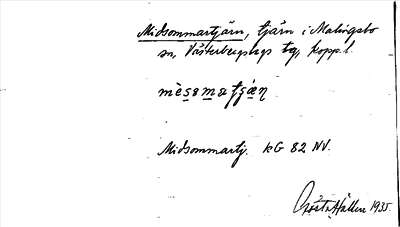 Midsommartjärn, tjärn i Malingsbo
sn, Västerbergslags tg, Kopp. l.
mèsomatjæ̣ṇ
Midsommartj. kG 82 NV.
Gösta Hallin 1935.